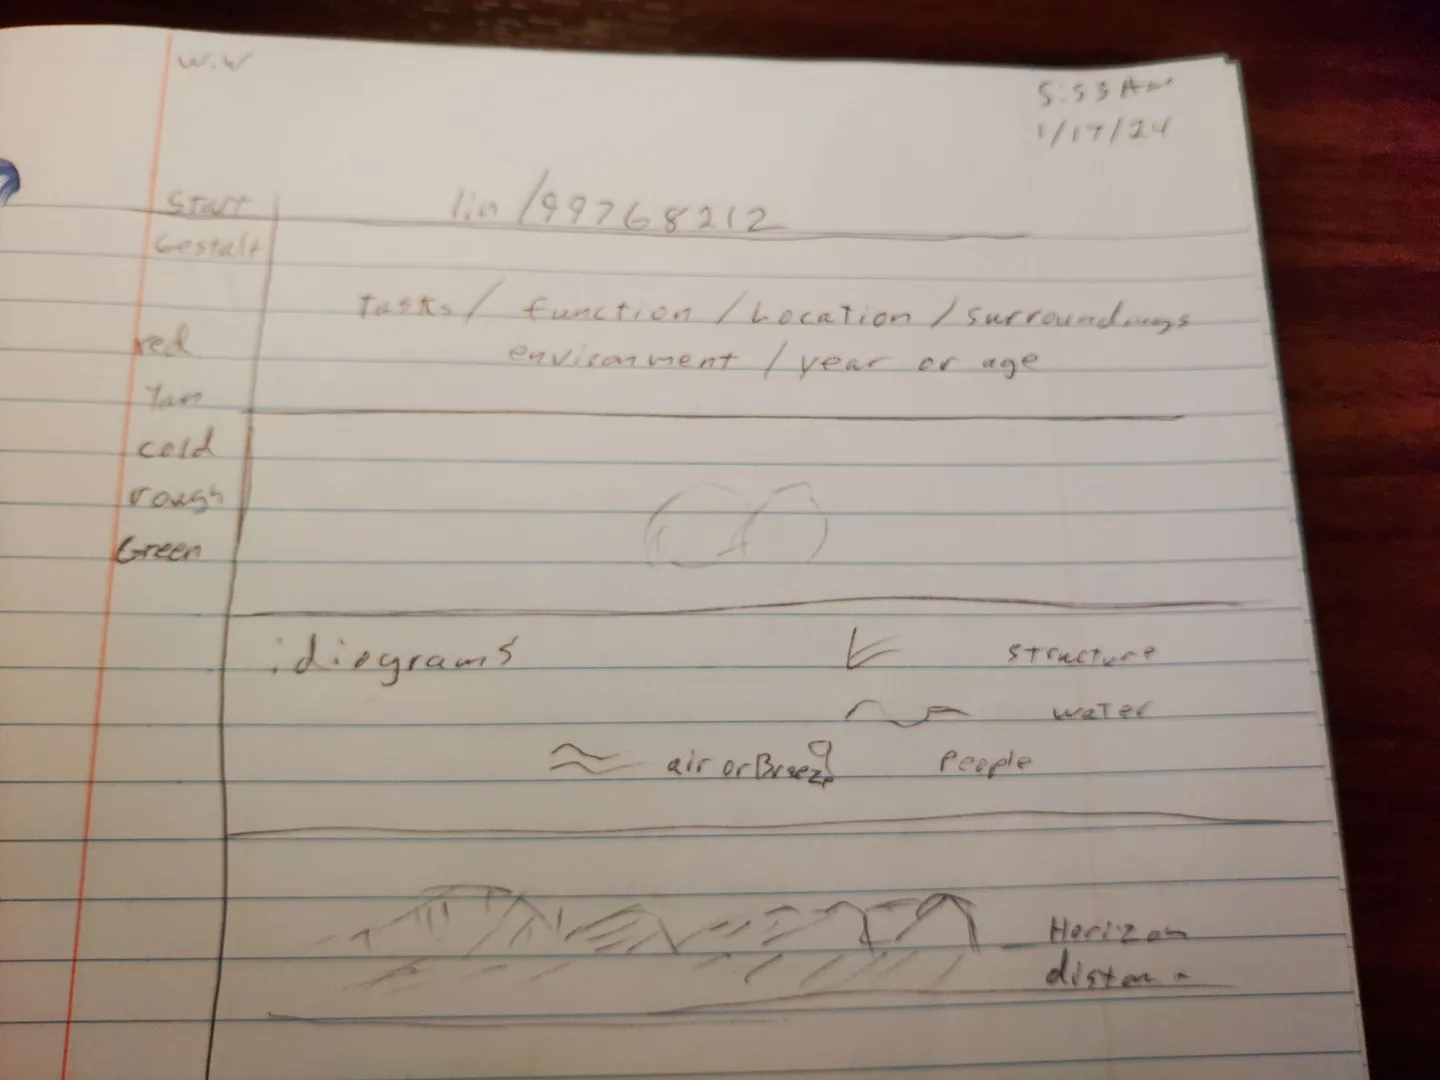 W.W
5:53 AM
1/17/24
Start
lin /99768212
Gestalt
Tasks / function / Location / surroundings
environment / year or age
red
Tan
cold
rough
Green
idiograms
structure
water
air or Breeze
People
Horizon